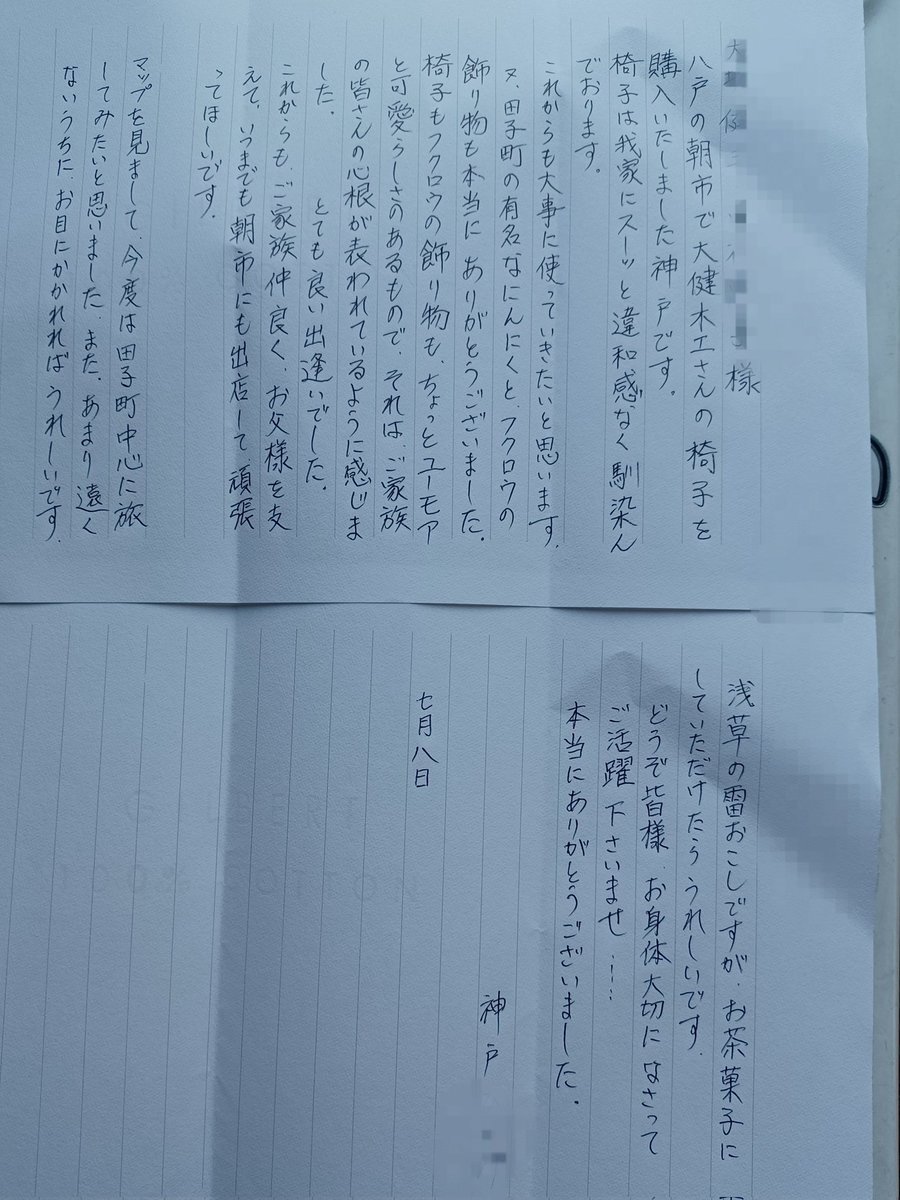 様
八戸の朝市で大健木工さんの椅子を
購入いたしました神戸です。
椅子は我家にスーッと違和感なく馴染ん
でおります。
これからも大事に使っていきたいと思います。
又、田子町の有名なにんにくと、フクロウの
飾り物も本当に ありがとうございました。
椅子もフクロウの飾り物も、ちょっとユーモア
と可愛らしさのあるもので、それは、ご家族
の皆さんの心根が表われているように感じま
した。 とても良い出逢いでした。
これからも、ご家族仲良く、お父様を支
えて、いつまでも朝市にも出店して頑張
ってほしいです。
マップを見まして、今度は田子町中心に旅
してみたいと思いました。また、あまり遠く
ないうちに、お目にかかれればうれしいです。
浅草の雷おこしですが、お茶菓子に
していただけたらうれしいです。
どうぞ皆様、お身体大切になさって
ご活躍下さいませ……
本当にありがとうございました。
神戸
七月八日